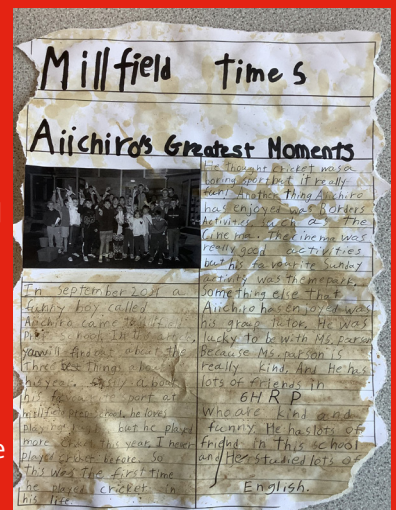 Millfield Times
Aiichiro's Greatest Moments
In September 2021 a
funny boy called
Aiichiro came to Millfield
Prep school. In this
you will find out about the
three best things about
his year. Firstly about
his favourite sport at
millfield prep school. he loves
playing but he played
more cricket this year. I never
played cricket before. So
this was The first time
he played cricket in
his life.
He thought cricket was a
boring sport but it really
fun! Another thing Aiichiro
has enjoyed was Borders
Activities such as The
Cinema. The cinema was
really good activities
but his favourite Sunday
activity was themepark.
Something else that
Aiichiro has enjoyed was
his group tutor. He was
lucky to be with Ms. parson
Because Ms. parson is
really kind. And He has
lots of friends in
6HRP
who are kind and
funny. He has lots of
friend in this school
and He studied lots of
English.
e